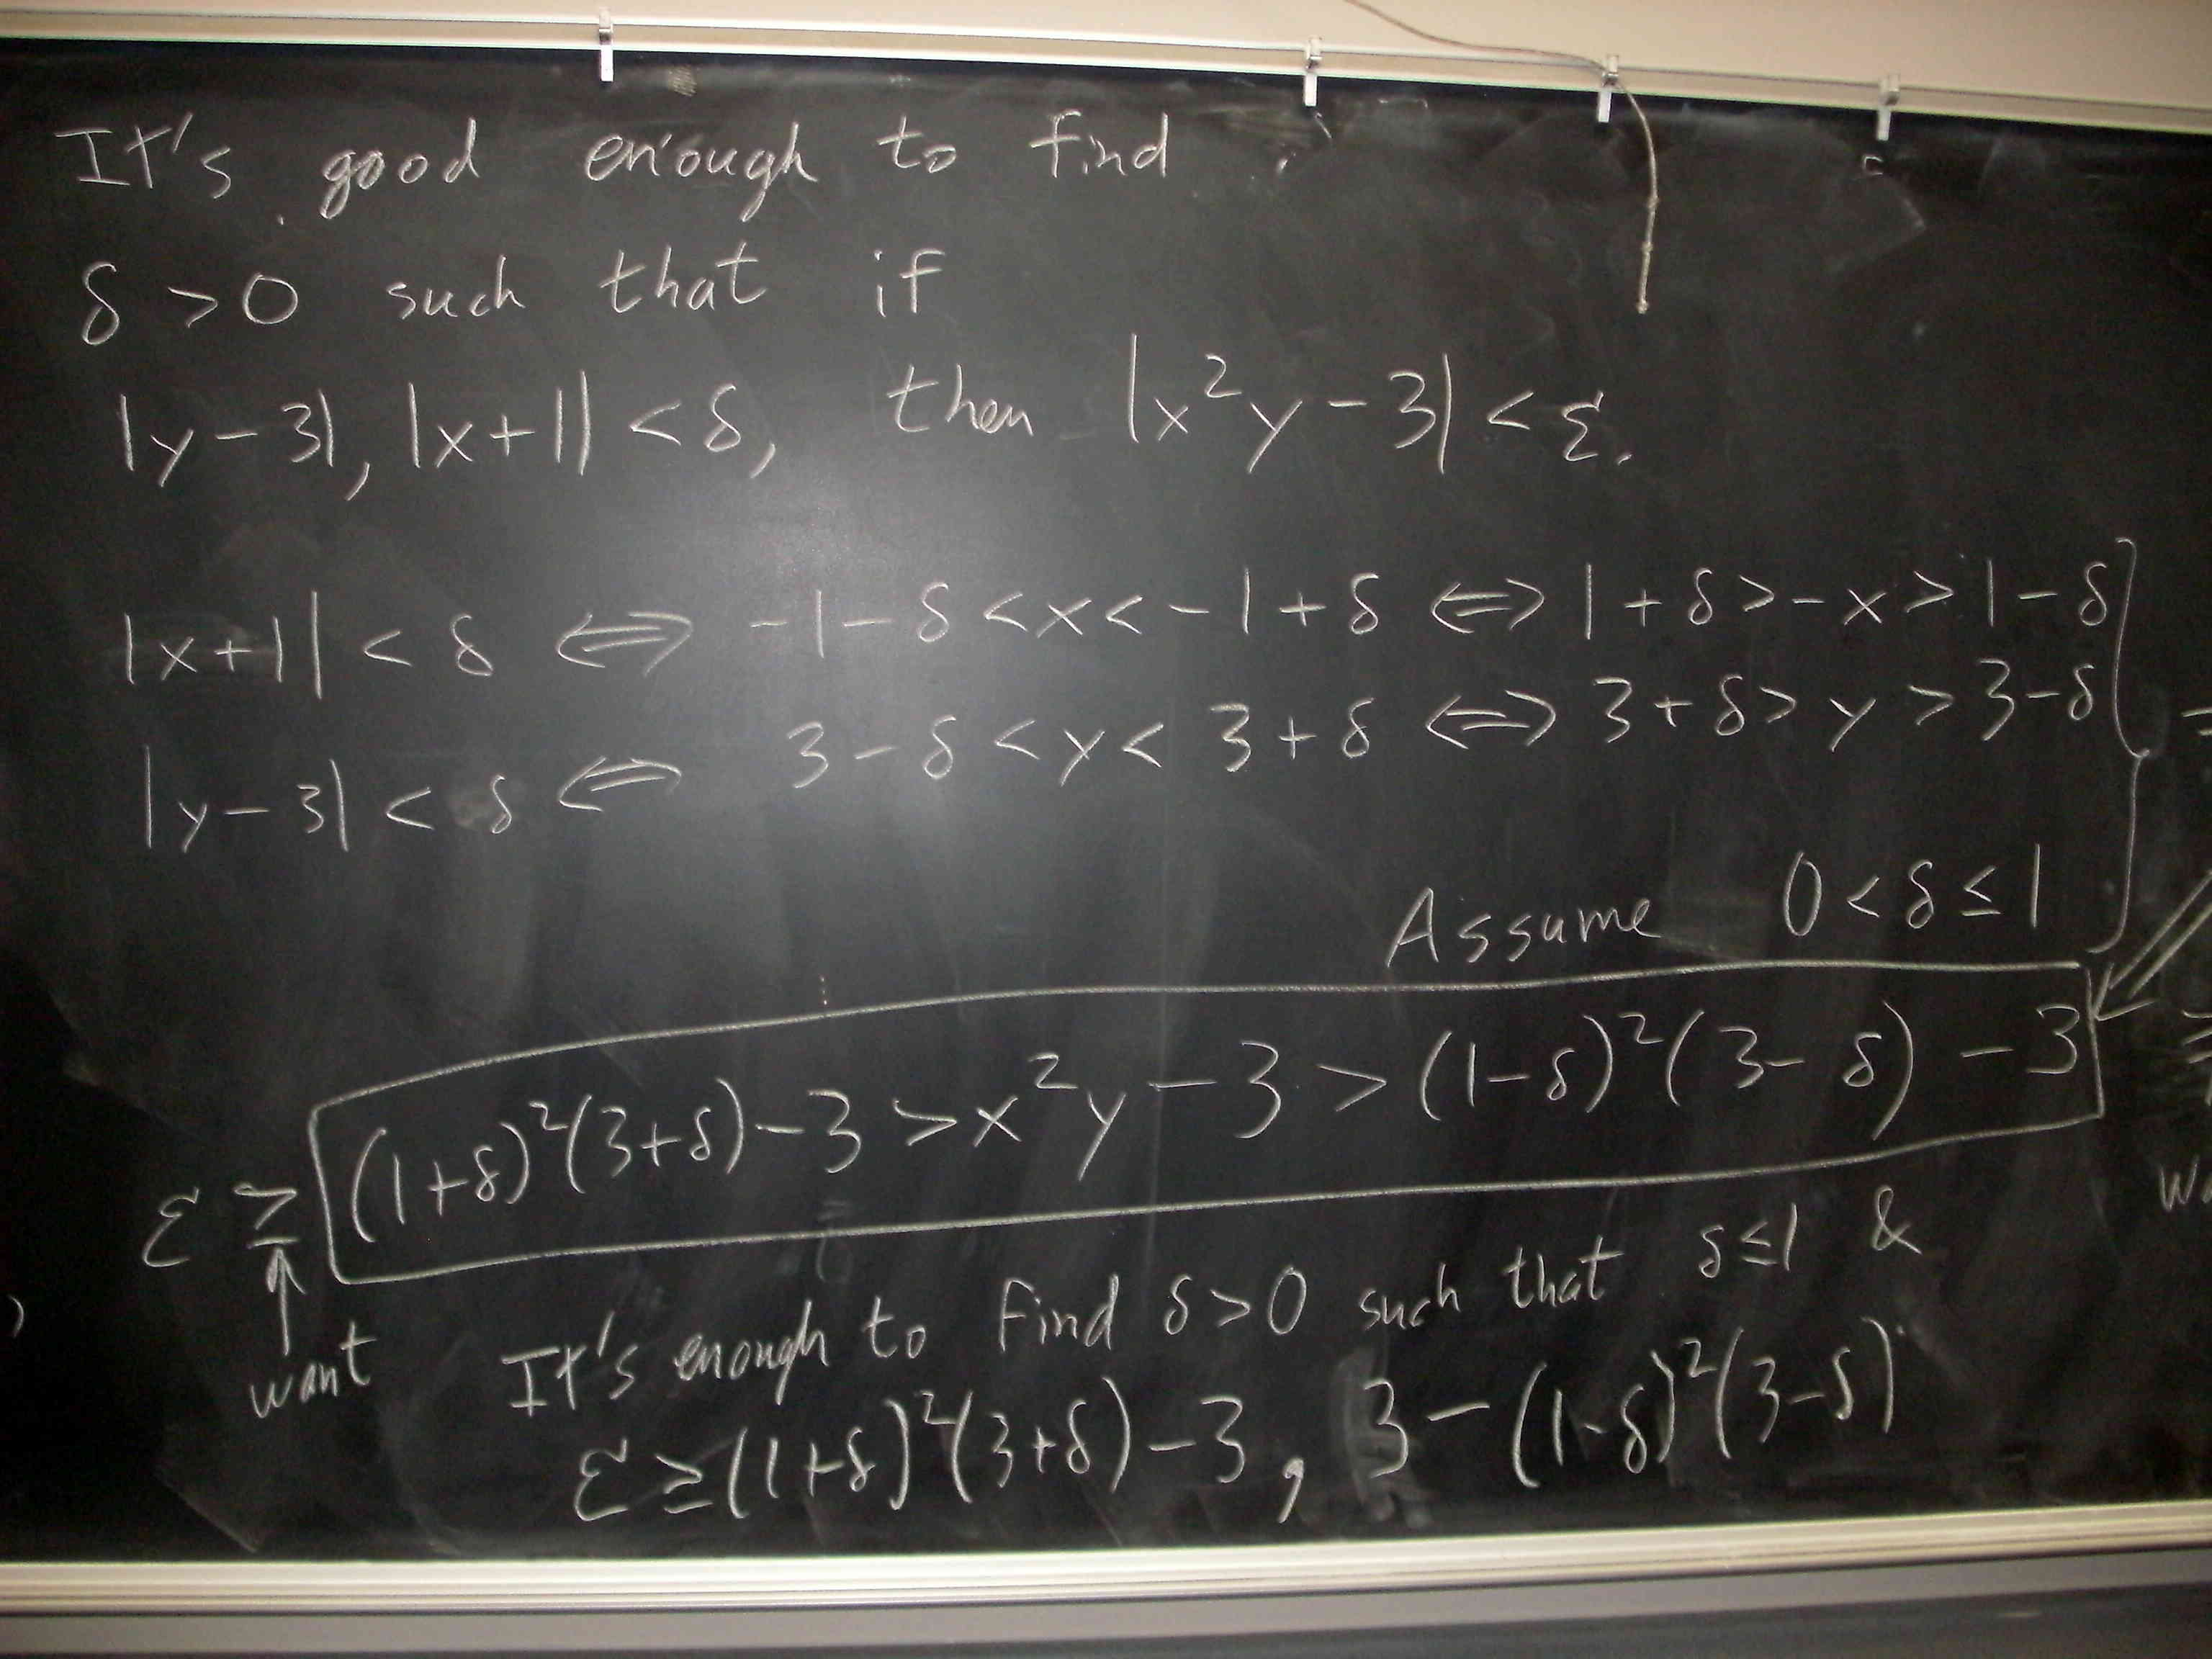 It's good enough to find
δ > 0 such that if
|y-3|, |x+1| < δ, then |x²y-3| < ε.
|x+1| < δ ⟺ -1-δ < x < -1+δ ⟺ 1+δ > -x > 1-δ
|y-3| < δ ⟺ 3-δ < y < 3+δ ⟺ 3+δ > y > 3-δ
Assume 0 < δ ≤ 1
ε ≥ (1+δ)²(3+δ)-3 > x²y-3 > (1-δ)²(3-δ)-3
↑
want
It's enough to find δ > 0 such that δ ≤ 1 &
ε ≥ (1+δ)²(3+δ)-3, 3-(1-δ)²(3-δ)